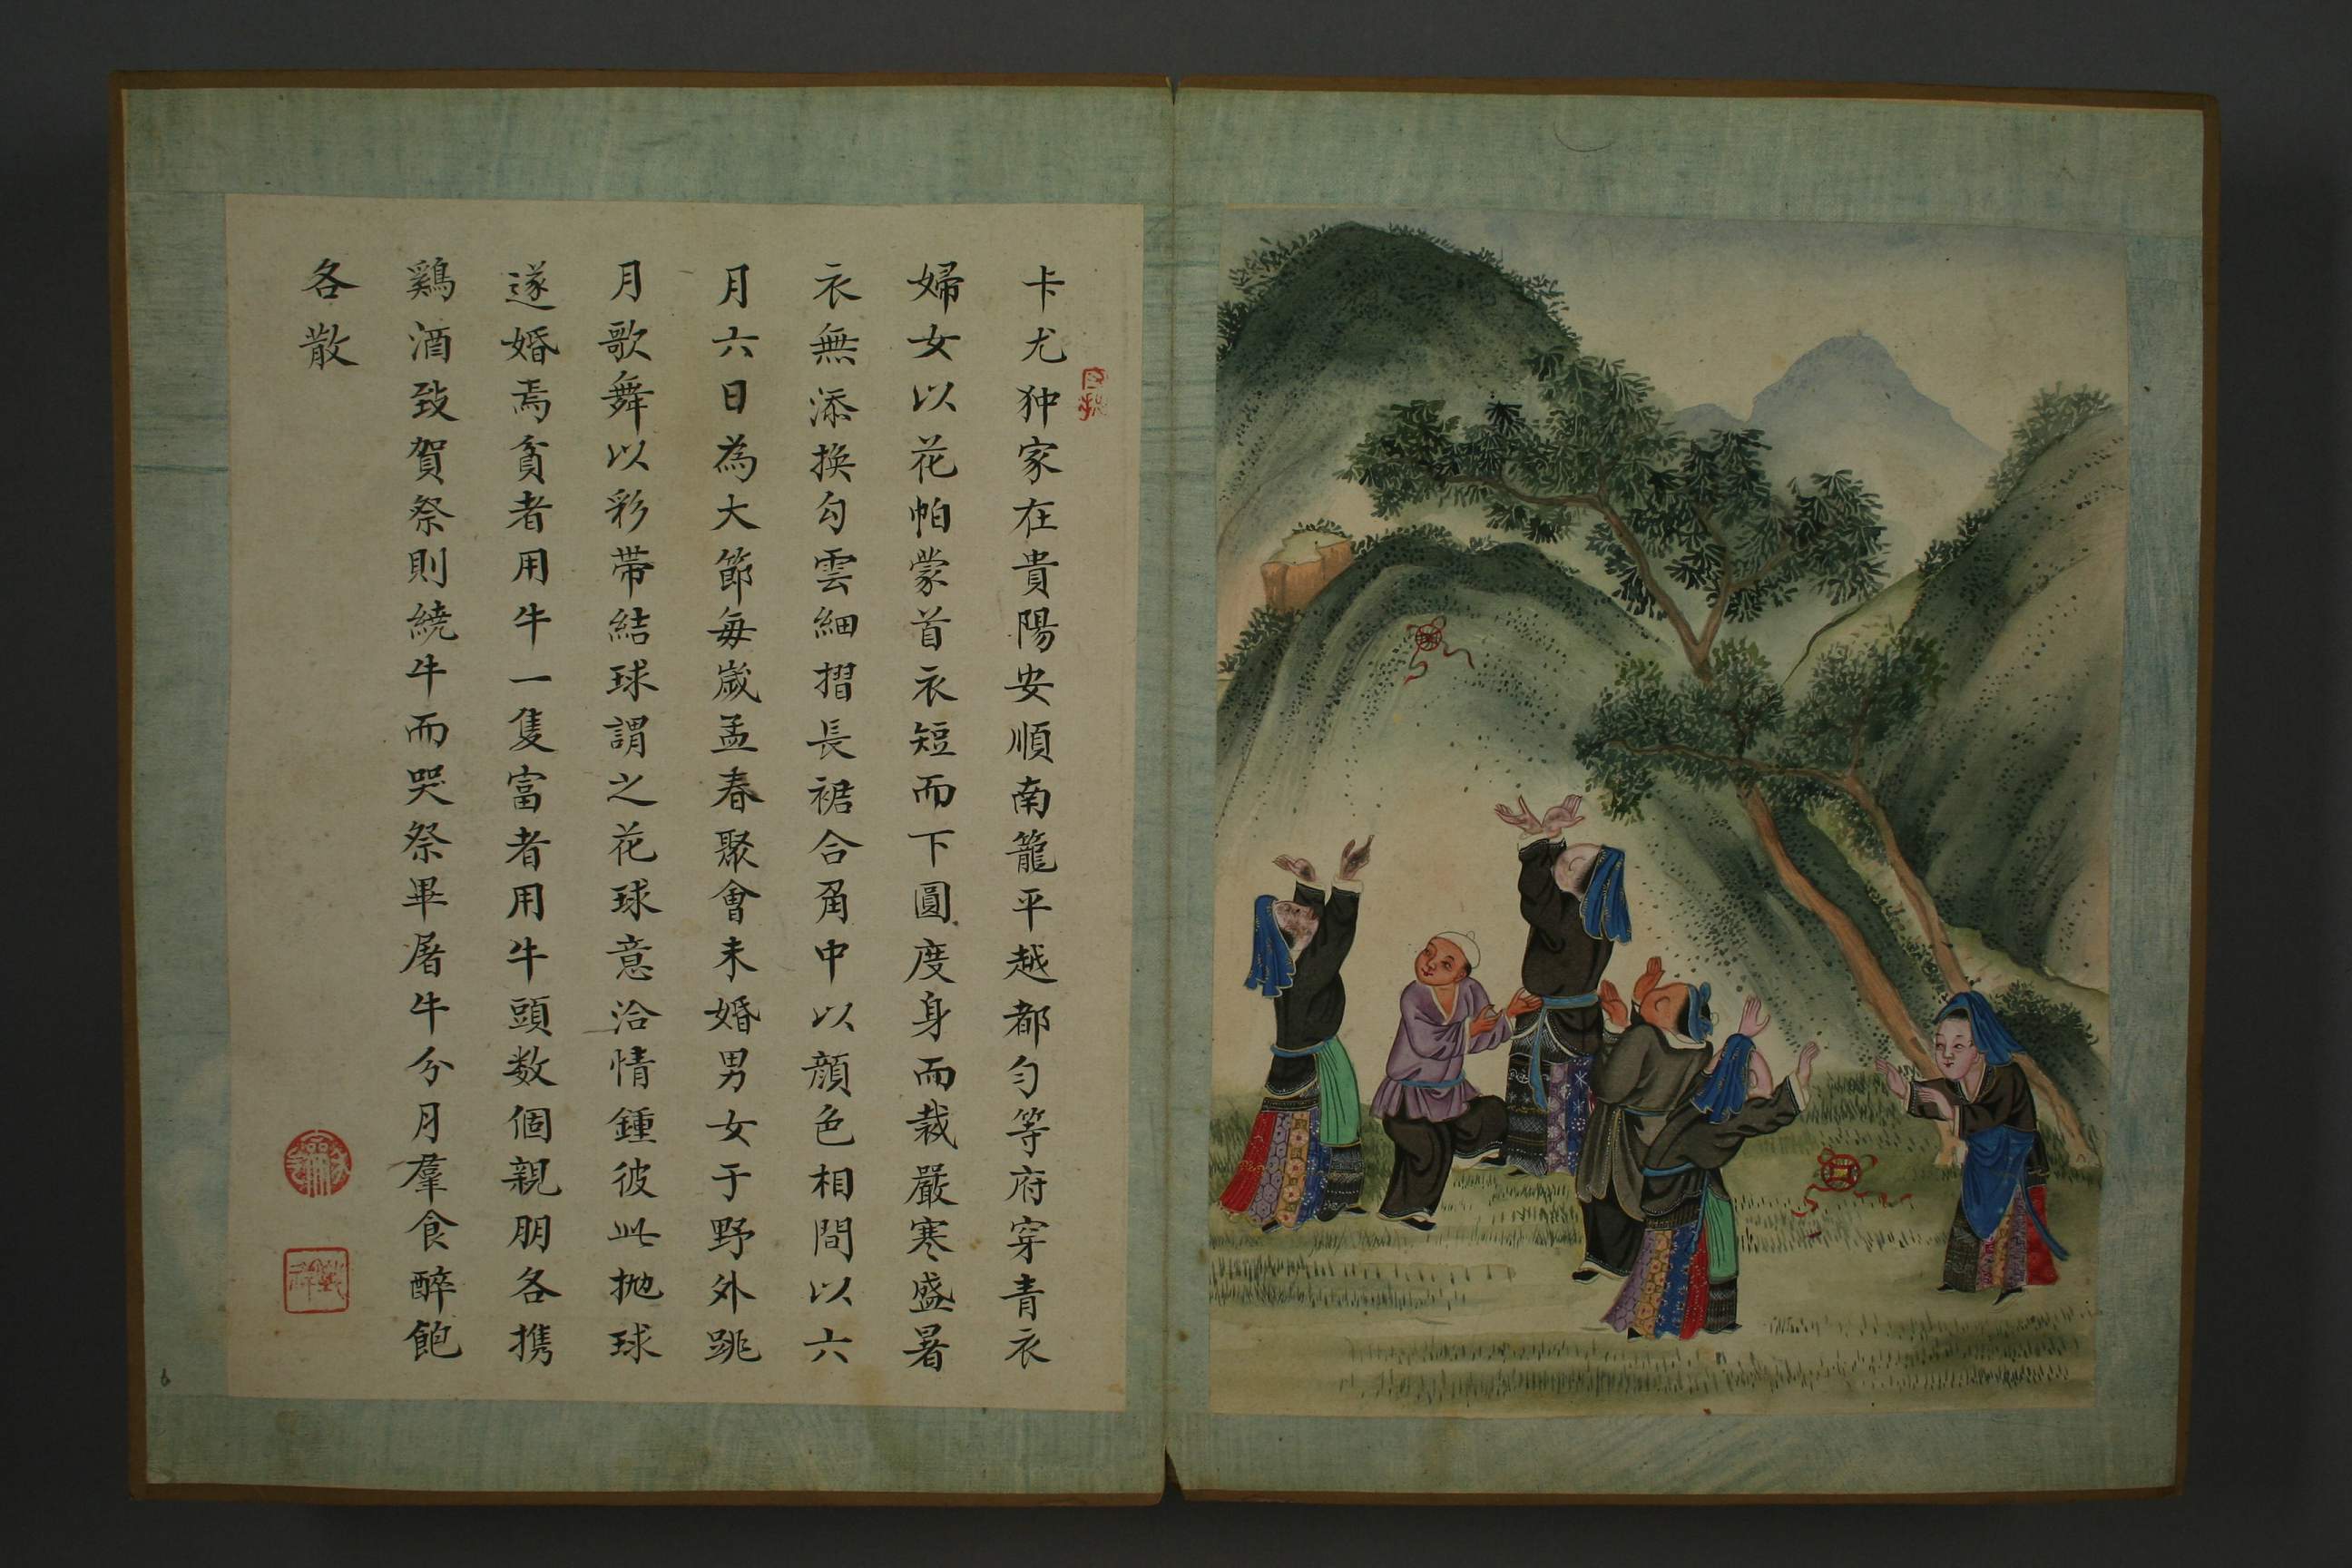 卡尤狆家在貴陽安順南籠平越都匀等府穿青衣
婦女以花帕蒙首衣短而下圓度身而裁嚴寒盛暑
衣無添換勾雲細摺長裾合角中以顔色相間以六
月六日為大節每歲孟春聚會未婚男女于野外跳
月歌舞以彩帶結球謂之花球意洽情鍾彼此抛球
遂婚焉貧者用牛一隻富者用牛頭数個親朋各携
鷄酒致賀祭則繞牛而哭祭畢屠牛分月羣食醉飽
各散
6